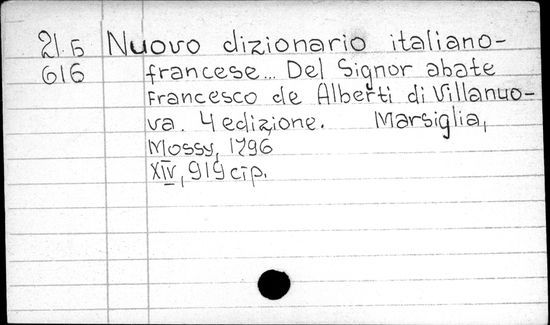 21.Б Nuovo dizionario italiano-
616 francese... Del Signor abate
Francesco de Alberti di Villanuo-
va. 4 edizione. Marsiglia,
Mossy, 1796
XIV, 919 стр.